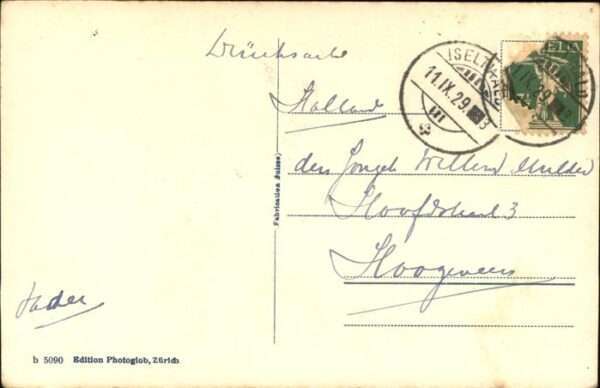 Drucksache
ISELTWALD
11.IX.29
HELVETIA
Holland
den Jongeh Willem Mulder
Hoofdstraat 3
Hoogeveen
Vader
Fabrication Suisse
b 5090 Edition Photoglob, Zürich